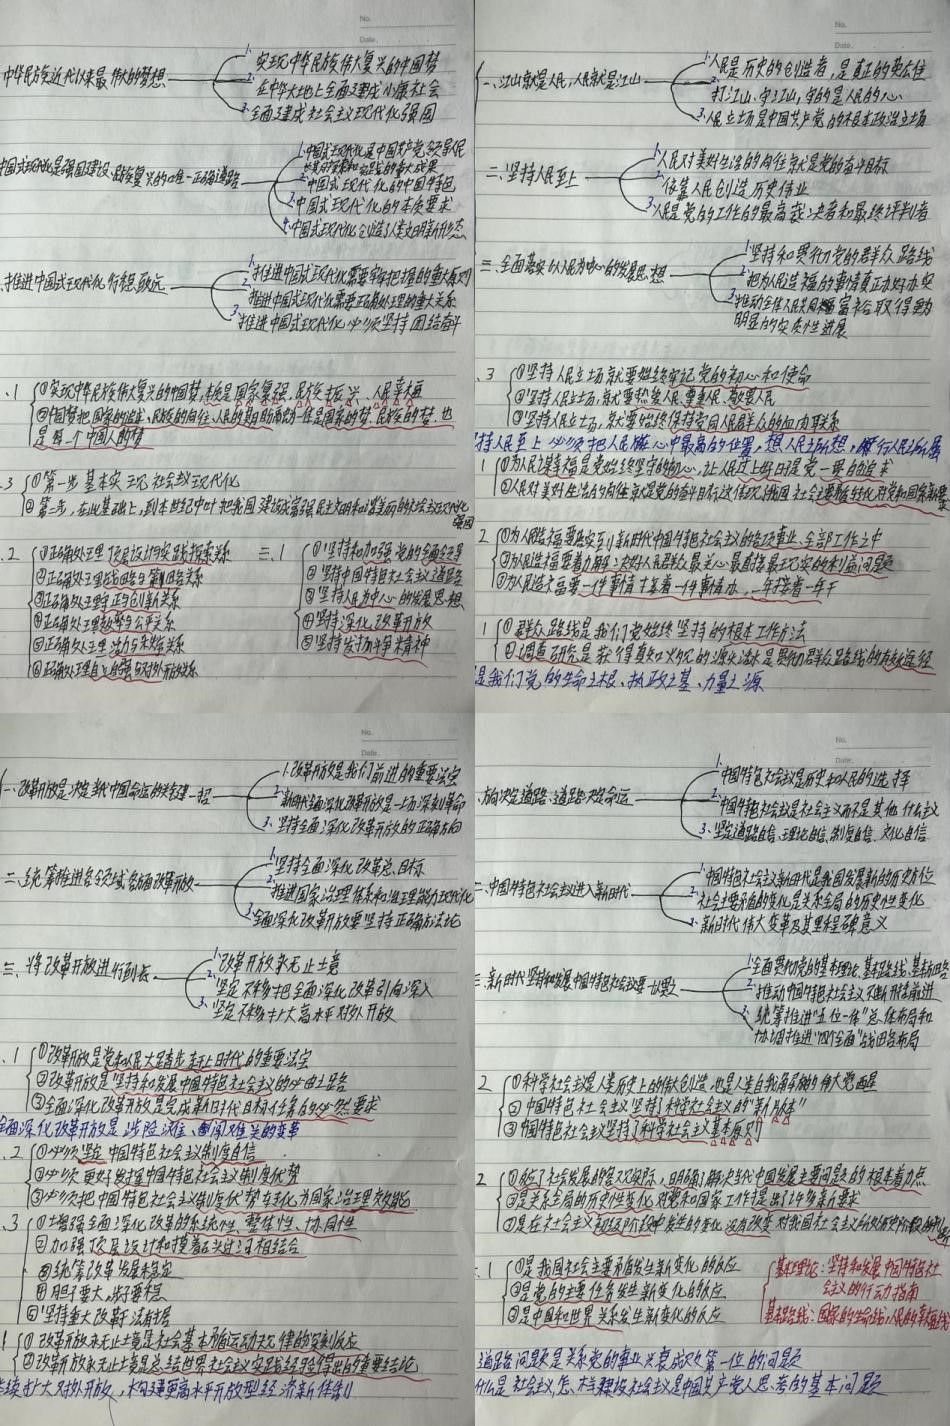 No.
Date.
中华民族近代以来最伟大的梦想
1. 实现中华民族伟大复兴的中国梦
2. 在中华大地上全面建成小康社会
3. 全面建成社会主义现代化强国
中国式现代化是强国建设、民族复兴的唯一正确道路
1. 中国式现代化是中国共产党领导人民
长期探索和实践的重大成果
2. 中国式现代化的中国特色
3. 中国式现代化的本质要求
4. 中国式现代化创造了人类文明新形态
推进中国式现代化行稳致远
1. 推进中国式现代化需要牢牢把握的重大原则
2. 推进中国式现代化需要正确处理的重大关系
3. 推进中国式现代化必须坚持团结奋斗
.1 ①实现中华民族伟大复兴的中国梦,本质是国家富强、民族振兴、人民幸福
②中国梦把国家的追求、民族的向往、人民的期盼融为一体是国家的梦、民族的梦,也
是每一个中国人的梦
.3 ①第一步 基本实现社会主义现代化
②第二步,在此基础上,到本世纪中叶把我国建设成富强民主文明和谐美丽的社会主义现代化
强国
.2 ①正确处理顶层设计与实践探索关系
②正确处理战略与策略关系
③正确处理守正与创新关系
④正确处理效率与公平关系
⑤正确处理活力与秩序关系
⑥正确处理自立自强与对外开放关系
三.1 ①坚持和加强党的全面领导
②坚持中国特色社会主义道路
③坚持人民为中心的发展思想
④坚持深化改革开放
⑤坚持发扬斗争精神
No.
Date.
一、江山就是人民,人民就是江山
1. 人民是历史的创造者,是真正的英雄
2. 打江山、守江山,守的是人民的心
3. 人民立场是中国共产党的根本政治立场
二、坚持人民至上
1. 人民对美好生活的向往就是党的奋斗目标
2. 依靠人民创造历史伟业
3. 人民是党的工作的最高裁决者和最终评判者
三、全面落实以人民为中心的发展思想
1. 坚持和贯彻党的群众路线
2. 把为人民造福的事情真正办好办实
3. 推动全体人民共同富裕取得
明显的实质性进展
.3 ①坚持人民立场就要始终牢记党的初心和使命
②坚持人民立场,就要热爱人民、尊重人民、敬畏人民
③坚持人民立场,就要始终保持党同人民群众的血肉联系
持人民至上 必须把人民放心中最高的位置,想人民之所想,行人民之所属
1 ①为人民谋幸福是党始终坚守的初心,让人民过上好日子是党一贯的追求
②人民对美好生活的向往就是党的奋斗目标这体现我国社会主要矛盾转化对党和国家新要求
2 ①为人民造福要落实到新时代中国特色社会主义的各项事业、全部工作之中
②为人民造福要着力解决好人民群众最关心最直接最现实的利益问题
③为人民造福要一件事情接着一件事情办,一年接着一年干
1 ①群众路线是我们党始终坚持的根本工作方法
②调查研究是获得真知灼见的源头活水是贯彻群众路线的有效途径
是我们党的生命之根、执政之基、力量之源
No.
Date.
一、改革开放是决定当代中国命运的关键一招
1. 改革开放是我们前进的重要法宝
2. 新时代全面深化改革开放是一场深刻革命
3. 坚持全面深化改革开放的正确方向
二、统筹推进各领域各方面改革开放
1. 坚持全面深化改革总目标
2. 推进国家治理体系和治理能力现代化
3. 全面深化改革开放要坚持正确方法论
三、将改革开放进行到底
1. 改革开放永无止境
2. 坚定不移把全面深化改革引向深入
3. 坚定不移扩大高水平对外开放
.1 ①改革开放是党和人民大踏步赶上时代的重要法宝
②改革开放是坚持和发展中国特色社会主义的必由之路
③全面深化改革开放是完成新时代目标任务的必然要求
全面深化改革开放是涉险滩、闯难关的变革
.2 ①必须坚定中国特色社会主义制度自信
②必须更好发挥中国特色社会主义制度优势
③必须把中国特色社会主义制度优势转化为国家治理效能
.3 ①增强全面深化改革的系统性、整体性、协同性
②加强顶层设计和摸着石头过河相结合
③统筹改革发展稳定
④胆子要大,步子要稳
⑤坚持重大改革于法有据
1 ①改革开放永无止境是社会基本矛盾运动规律的深刻反应
②改革开放永无止境是总结世界社会主义实践经验得出的重要结论
续扩大对外开放,构建更高水平开放型经济新体制
No.
Date.
方向决定道路、道路决定命运
1. 中国特色社会主义是历史和人民的选择
2. 中国特色社会主义是社会主义而不是其他什么主义
3. 坚定道路自信、理论自信、制度自信、文化自信
二、中国特色社会主义进入新时代
1. 中国特色社会主义新时代是我国发展新的历史方位
2. 社会主要矛盾的变化是关系全局的历史性变化
3. 新时代伟大变革及其里程碑意义
三、新时代坚持和发展中国特色社会主义要一以贯之
1. 全面贯彻党的基本理论、基本路线、基本方略
2. 推动中国特色社会主义不断开拓前进
3. 统筹推进“五位一体”总体布局和
协调推进“四个全面”战略布局
2 ①科学社会主义是人类历史上的伟大创造,也是人类自我解放的伟大觉醒
②中国特色社会主义坚持了科学社会主义的“新版本”
③中国特色社会主义坚持了科学社会主义基本原则
2 ①反映了社会发展的客观实际,明确了解决当代中国发展主要问题的根本着力点
②是关系全局的历史性变化,对党和国家工作提出了许多新要求
③是在社会主义初级阶段中发生的变化,没有改变对我国社会主义所处历史阶段的判断
.1 ①是我国社会主要矛盾发生新变化的反应
②是党的主要任务发生新变化的反应
③是中国和世界关系发生新变化的反应
基本理论:坚持和发展中国特色社
会主义的行动指南
基本路线:国家的生命线,人民的幸福线
道路问题是关系党的事业兴衰成败第一位的问题
什么是社会主义,怎样建设社会主义是中国共产党人思考的基本问题